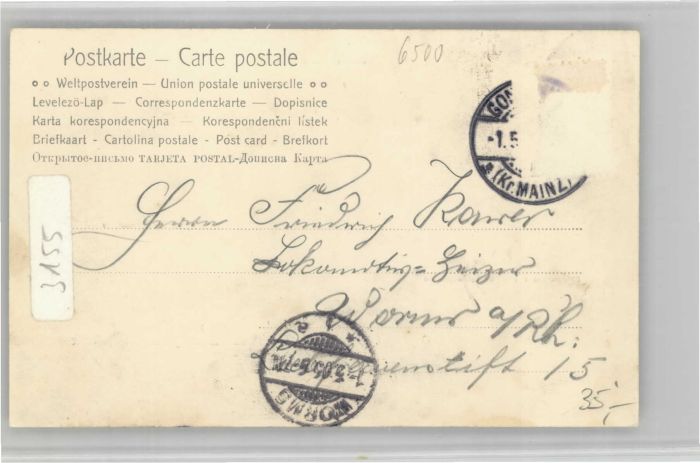 Postkarte — Carte postale
Weltpostverein — Union postale universelle
Levelezö-Lap — Correspondenzkarte — Dopisnice
Karta korespondencyjna — Korespondenčni listek
Briefkaart - Cartolina postale - Post card - Brefkort
Открытое-письмо TARJETA POSTAL-Дописна Карта
6500
-1.5
(Kr. MAINZ)
3155
Herrn Friedrich
Lokomotiv-Heizer
Worms a/Rh:
15
WORMS
35,-